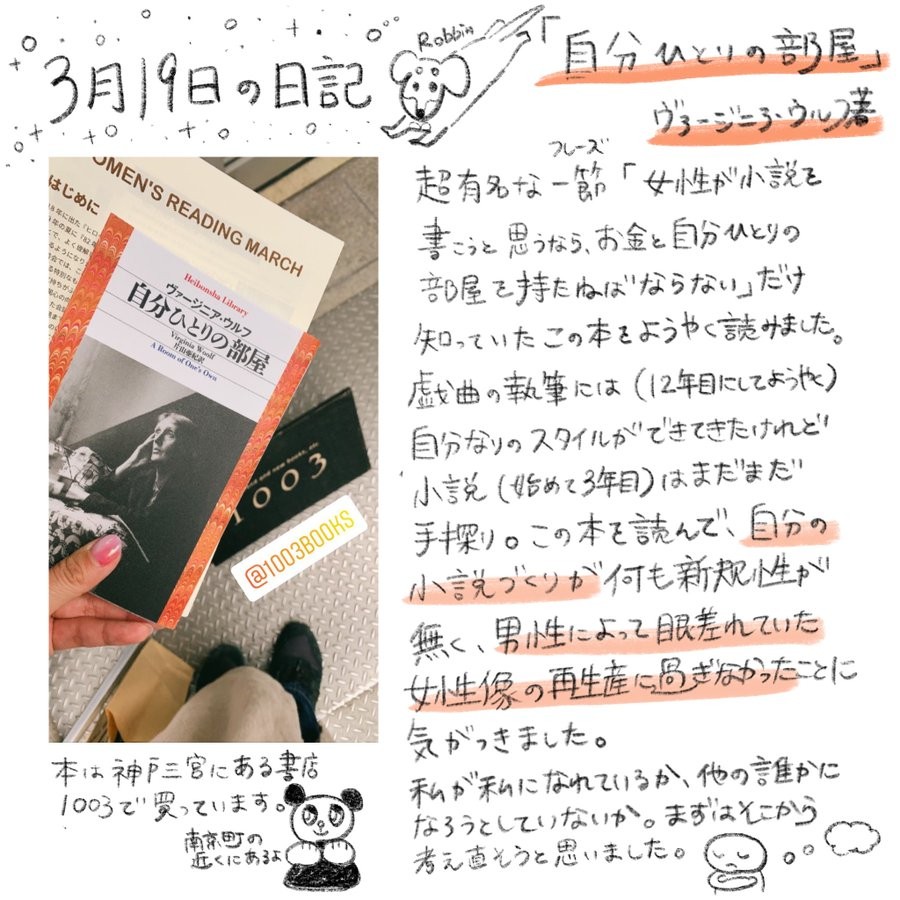 3月19日の日記
Robbin
「自分ひとりの部屋」
ヴァージニア・ウルフ著
フレーズ
超有名な一節「女性が小説を
書こうと思うなら、お金と自分ひとりの
部屋を持たねばならない」だけ
知っていたこの本をようやく読みました。
戯曲の執筆には(12年目にしてようやく)
自分なりのスタイルができてきたけれど
小説(始めて3年目)はまだまだ
手探り。この本を読んで、自分の
小説づくりが何も新規性が
無く、男性によって眼差れていた
女性像の再生産に過ぎなかったことに
気がつきました。
私が私になれているか、他の誰かに
なろうとしていないか。まずはそこから
考え直そうと思いました。
OMEN'S READING MARCH
はじめに
Heibonsha Library
ヴァージニア・ウルフ
自分ひとりの部屋
Virginia Woolf
片山亜紀訳
A Room of One's Own
and new books, etc
1003
@1003BOOKS
本は神戸三宮にある書店
1003で買っています。
南京町の
近くにあるよ